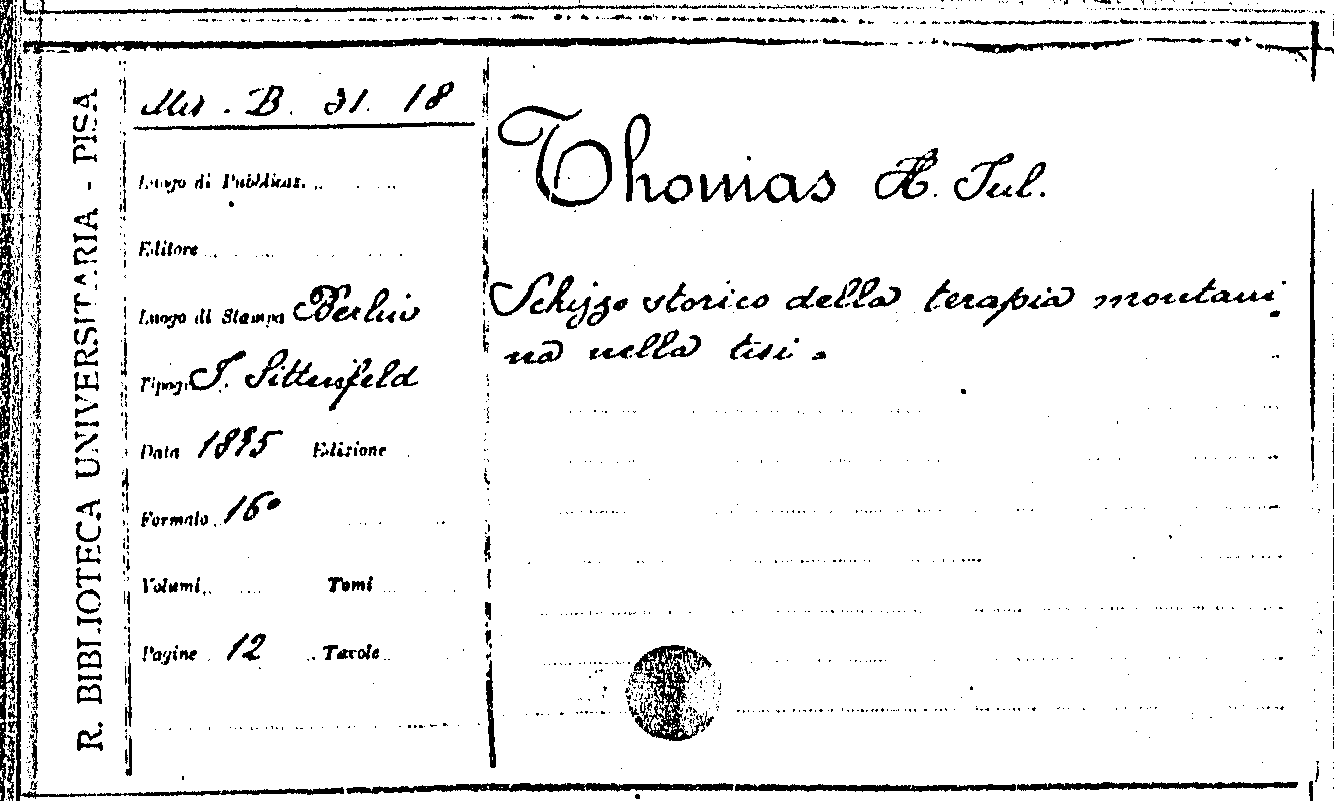 R. BIBLIOTECA UNIVERSITARIA - PISA
Mis. B. 31. 18
Luogo di Pubblicaz.
Editore
Luogo di Stampa Berlin
Tipogr. J. Sittenfeld
Data 1895 Edizione
Formato 16°
Volumi Tomi
Pagine 12 Tavole
Thomas H. Jul.
Schizzo storico della terapia montani
na nella tisi.